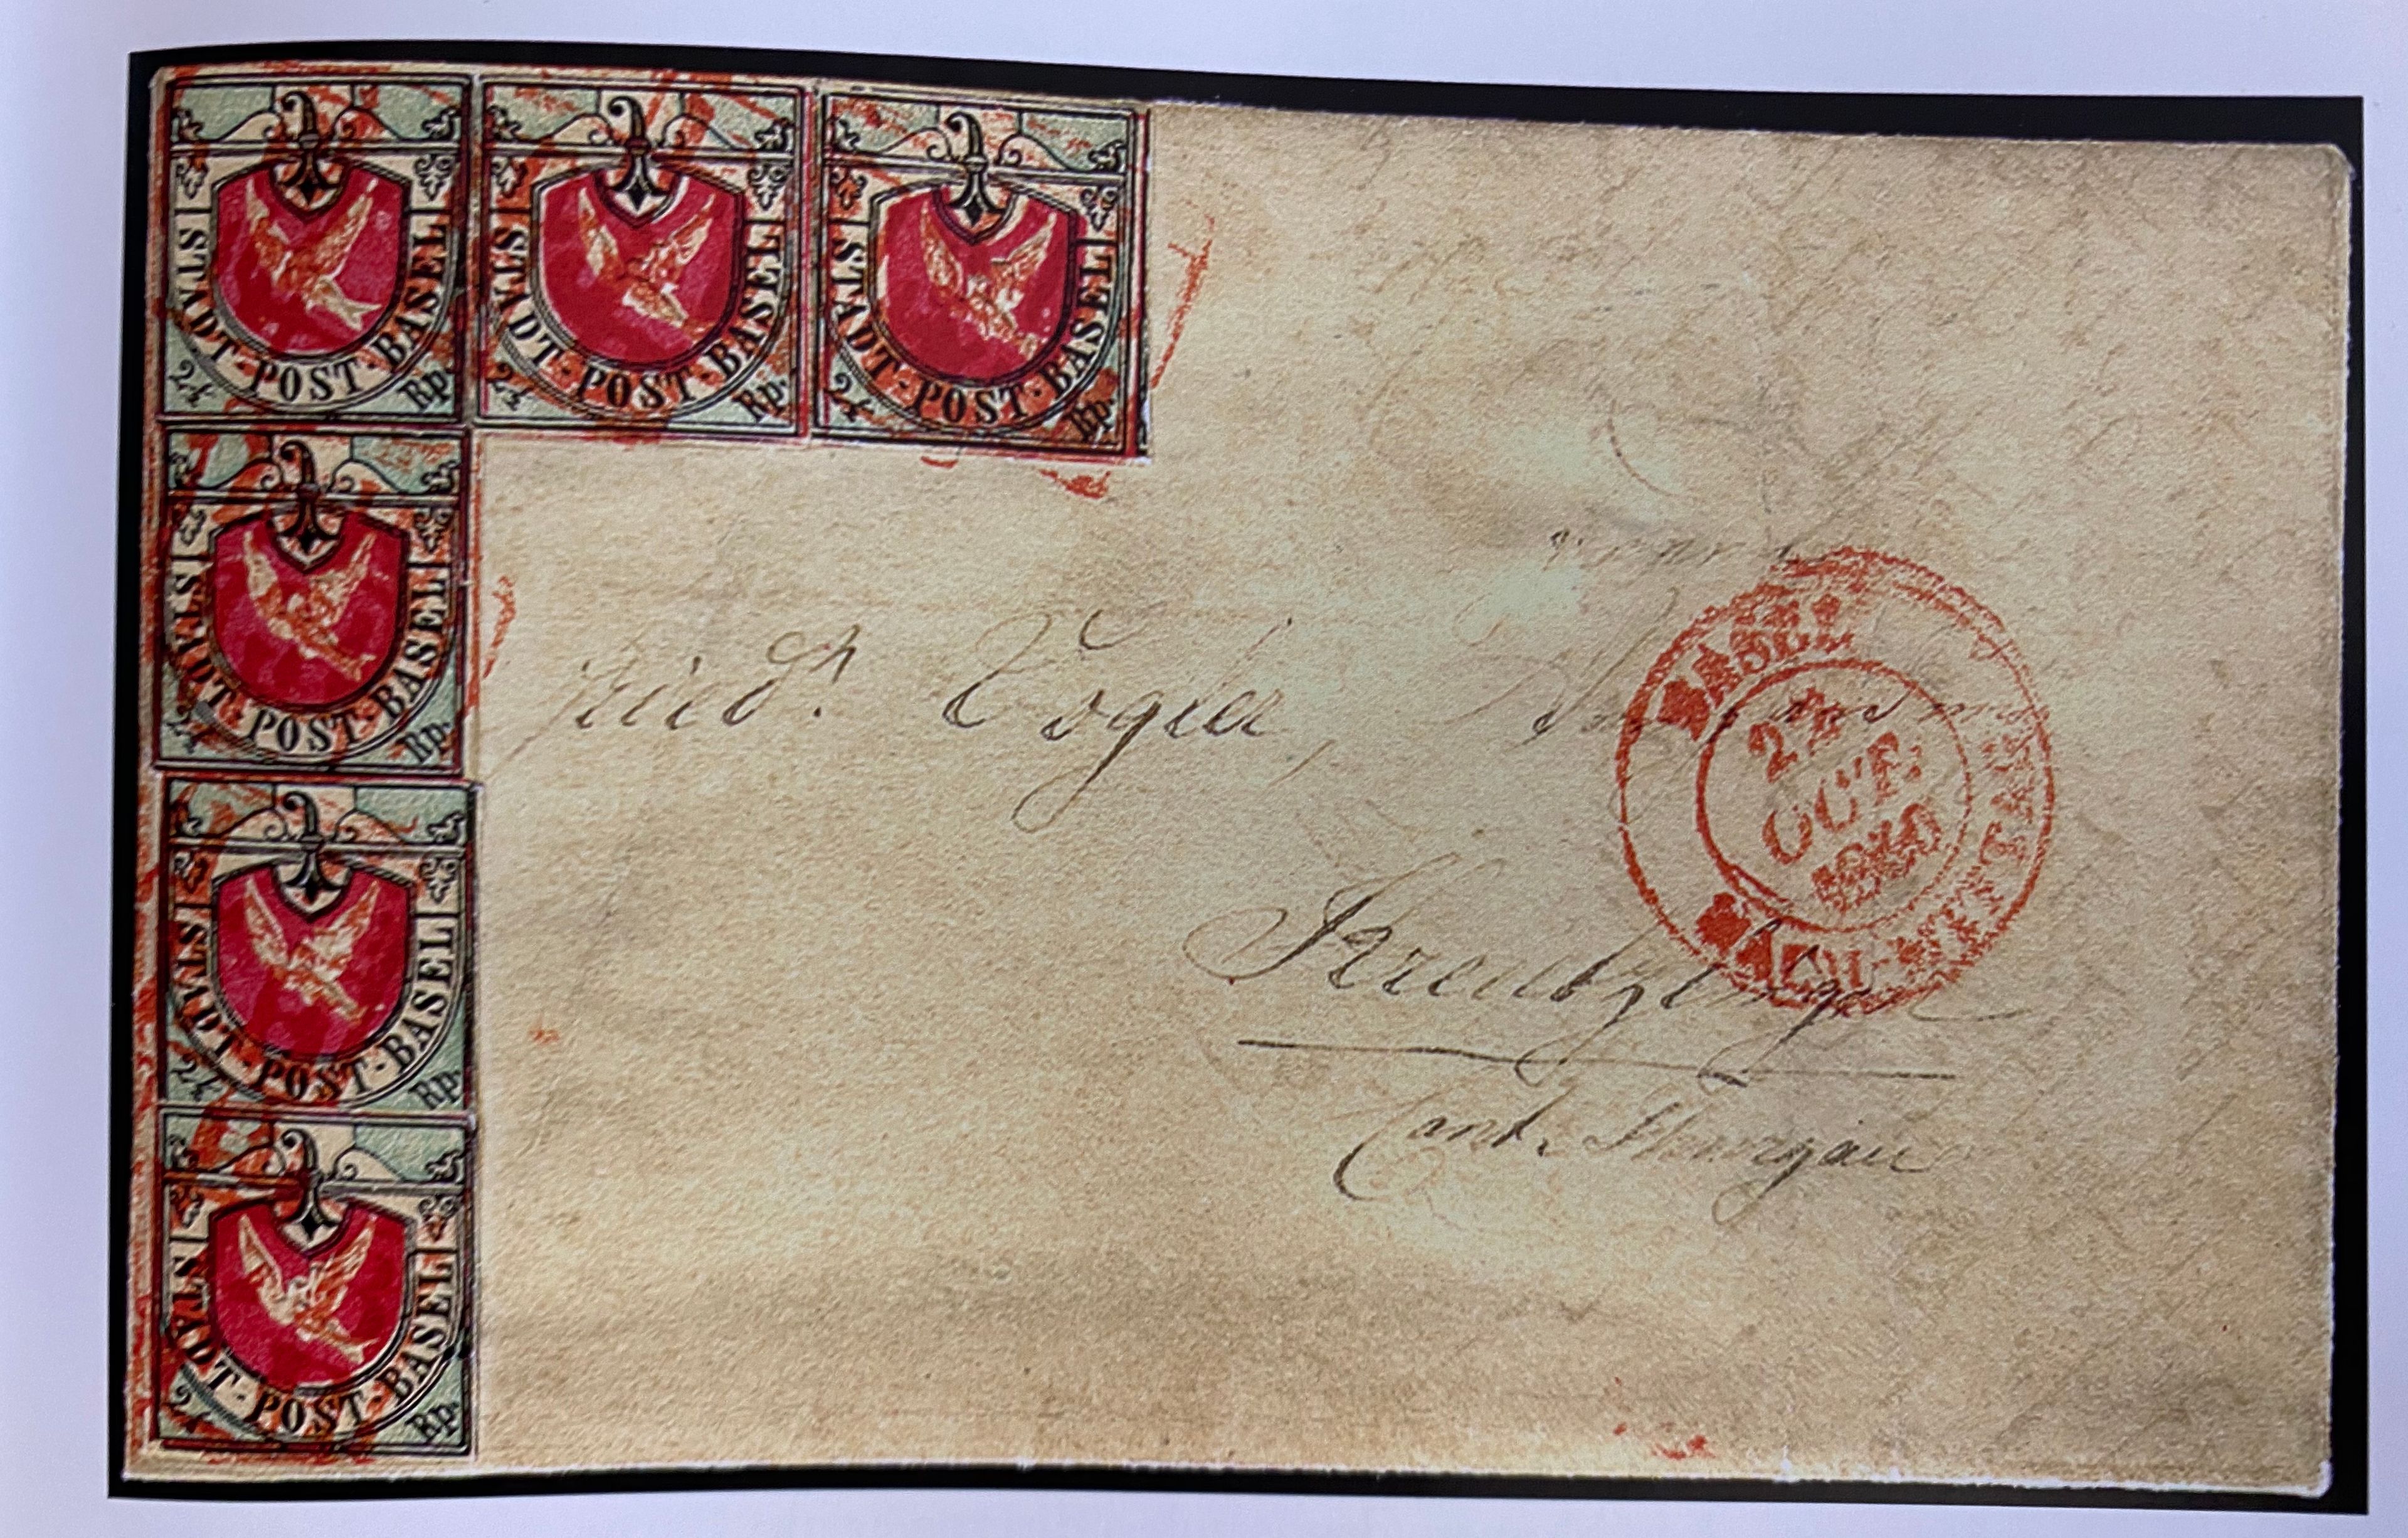 STADT-POST-BASEL
2½ Rp.
STADT-POST-BASEL
2½ Rp.
STADT-POST-BASEL
2½ Rp.
STADT-POST-BASEL
2½ Rp.
STADT-POST-BASEL
2½ Rp.
STADT-POST-BASEL
2½ Rp.
Friedr. Vogler,
BASEL
OCT.
1850
NACHMITTAG
Kreutzlingen
Cant. Thurgau